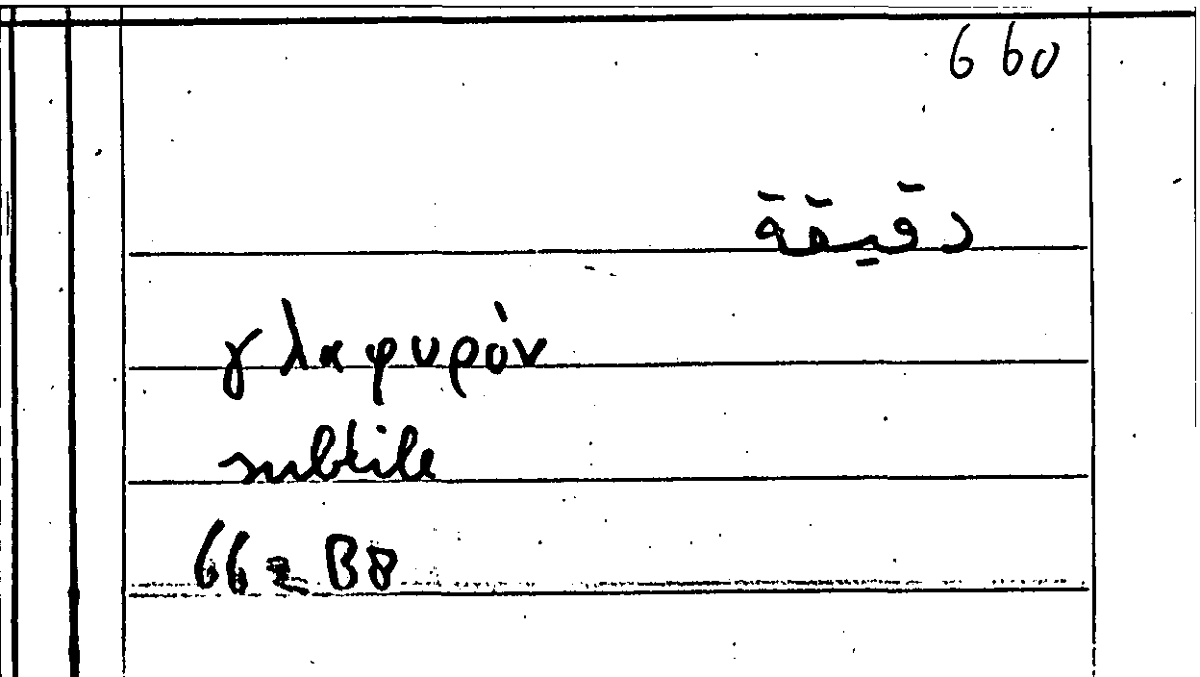 660
دقيقة
γλαφυρόν
subtile
66 a B8